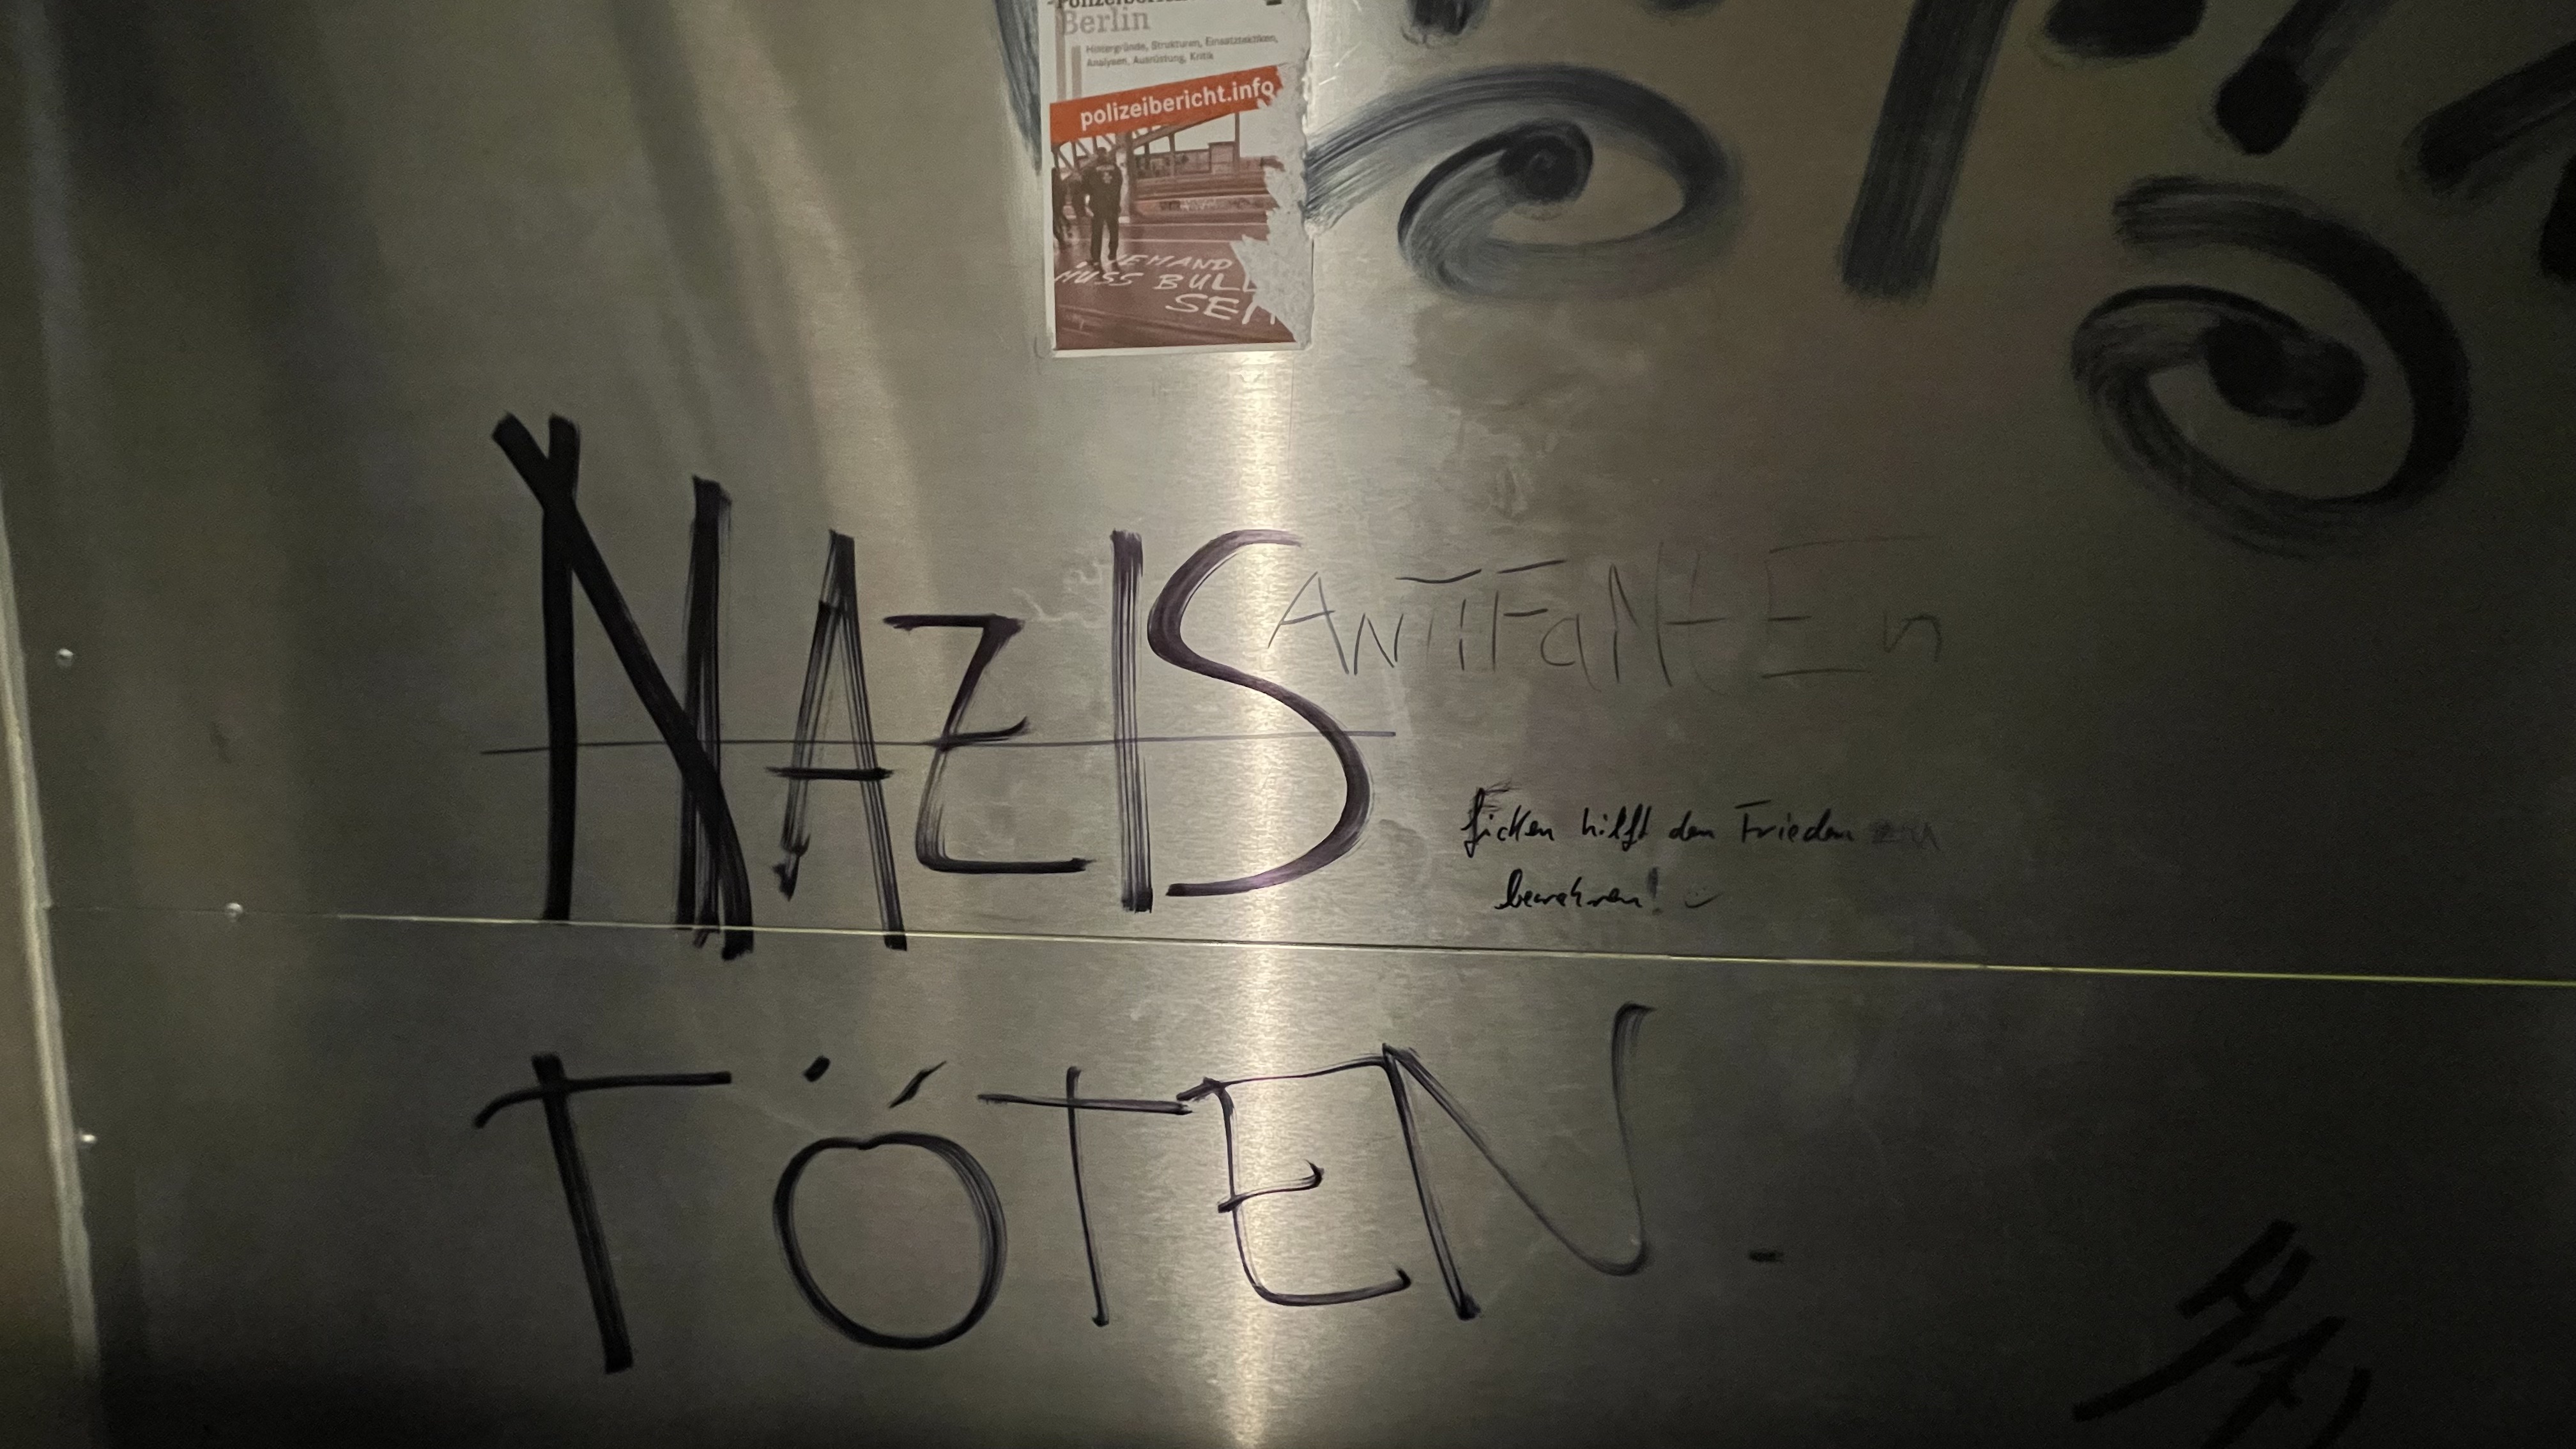 Berlin
Hintergründe, Strukturen, Einsatztaktiken,
Analysen, Ausrüstung, Kritik
polizeibericht.info
JEMAND
MUSS BULL
SEIN
NAZIS ANTiFaNtEn
ficken hilft den Frieden zu
bewahren!
TÖTEN.